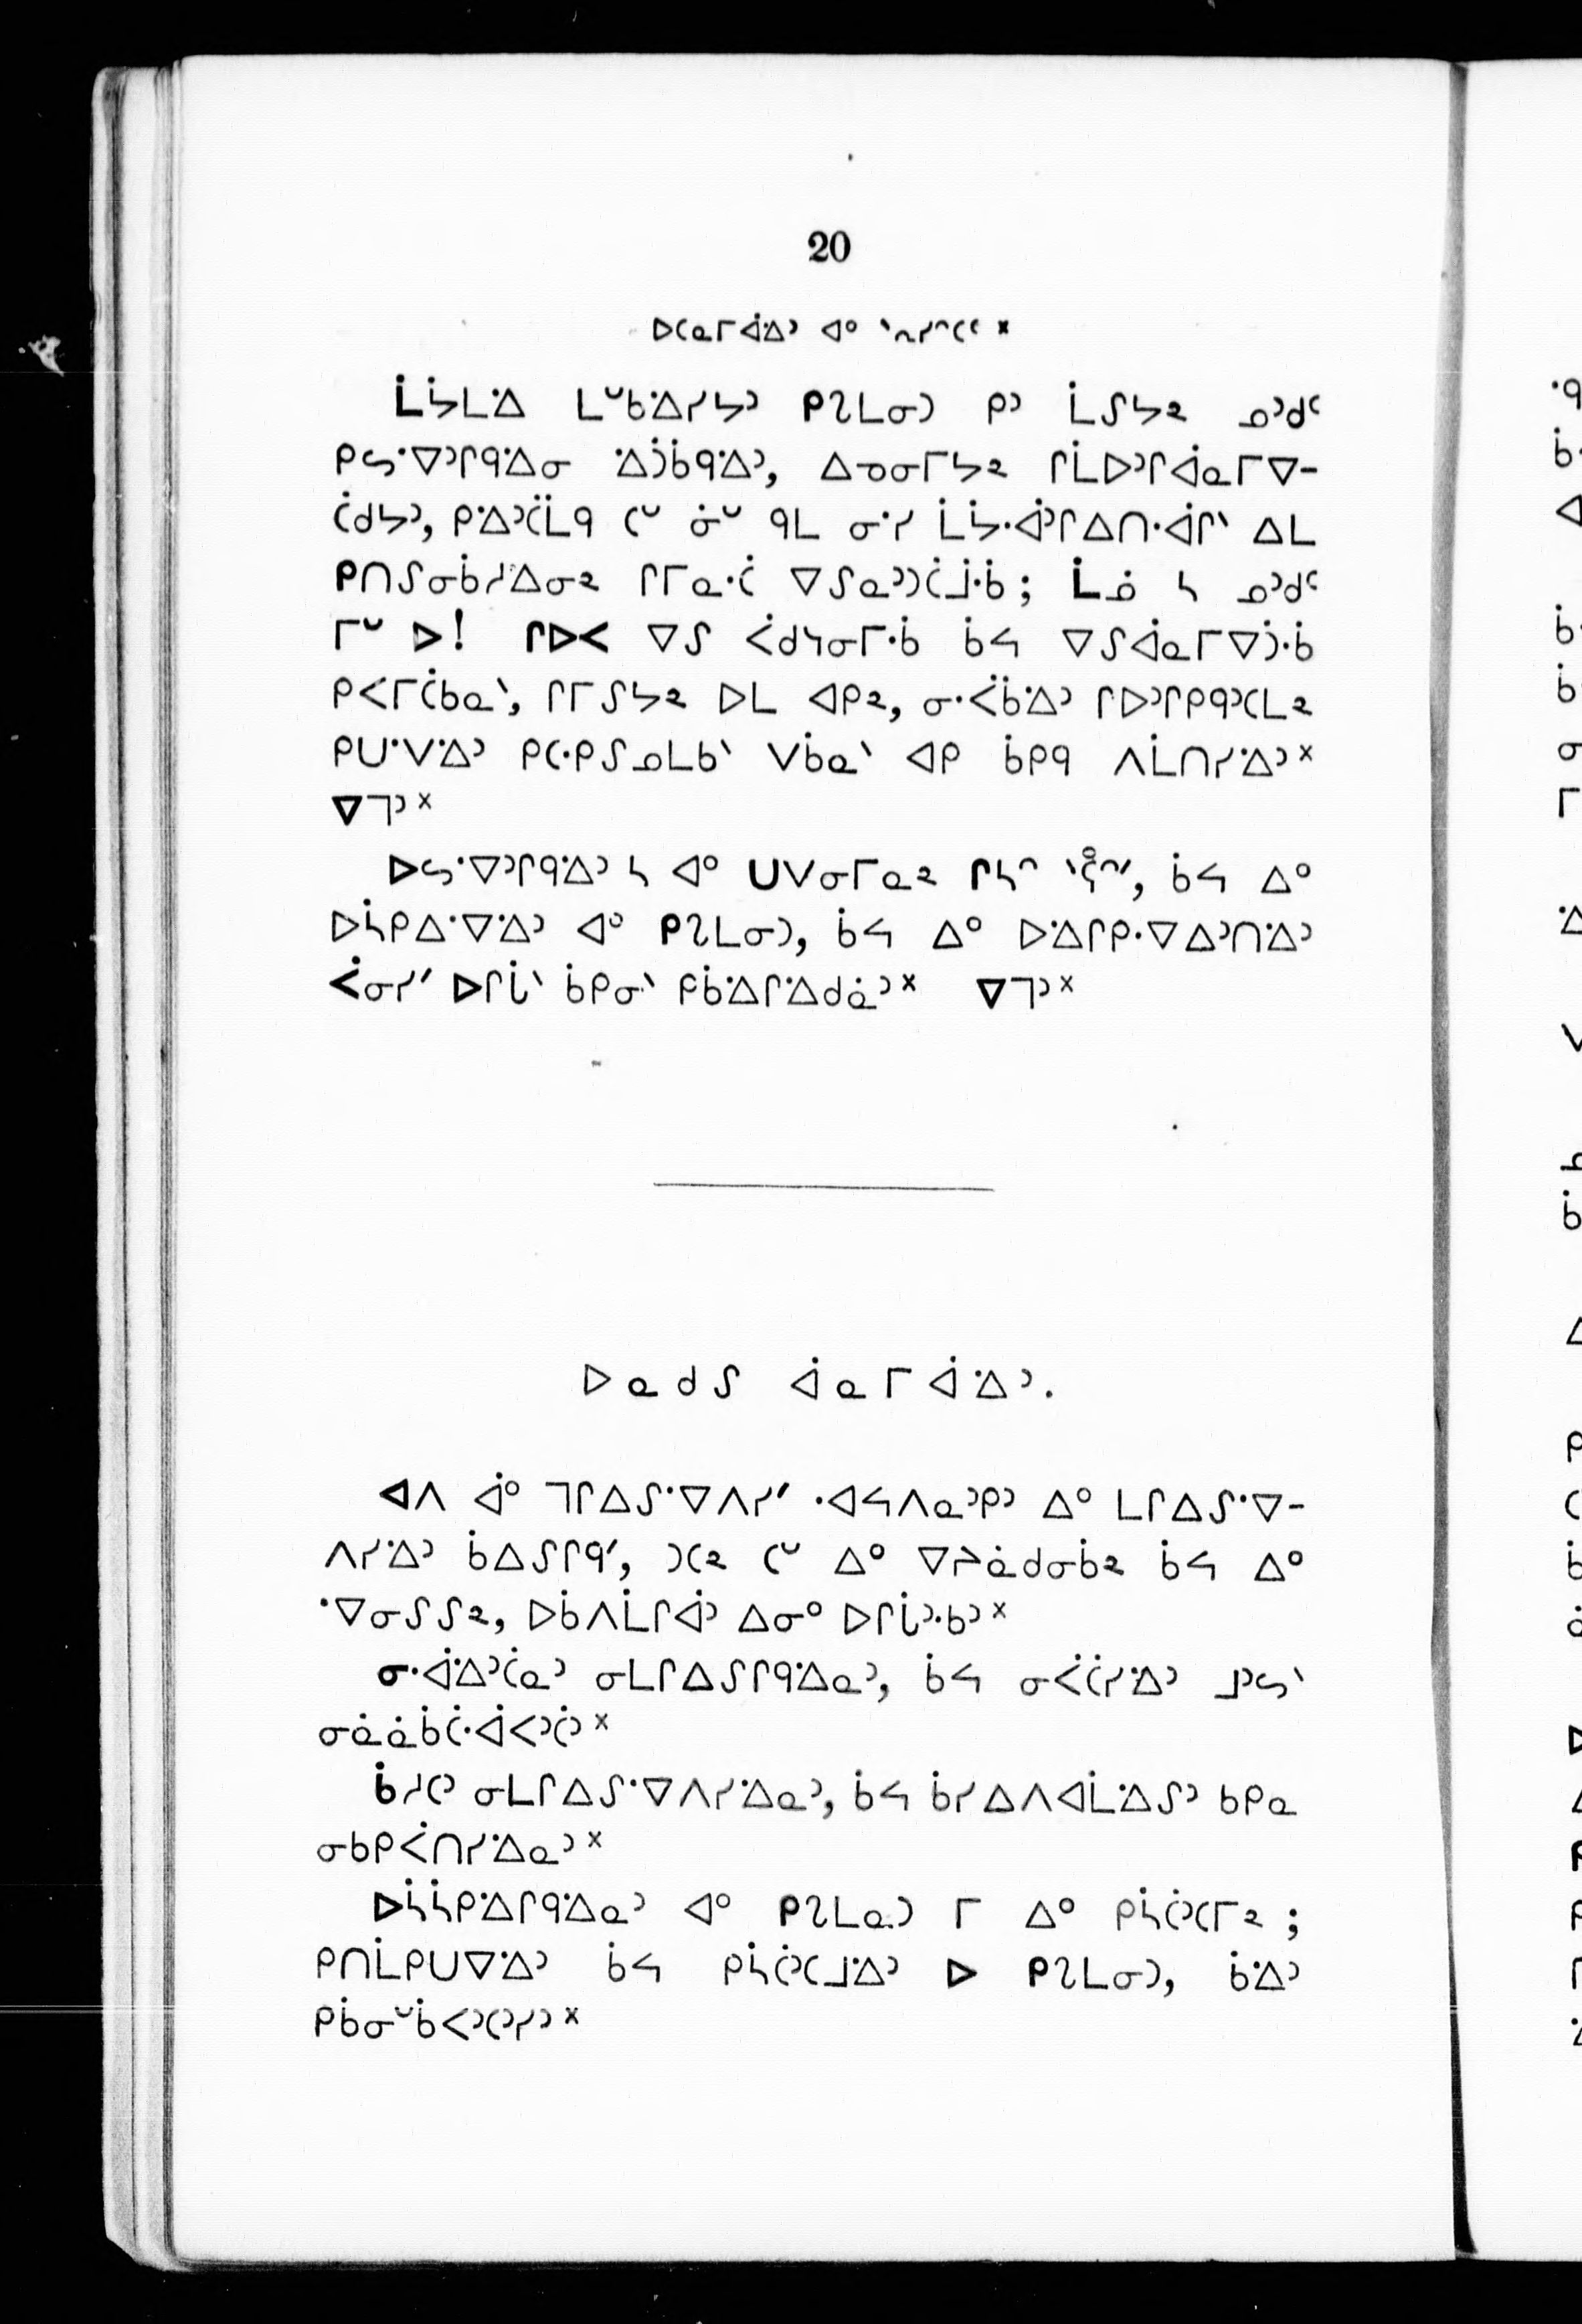 20
ᐅᑕᓇᒥᐋᐧᐃᐣ ᐊᐤ ᐠᕒᓯᐢᑕᑦ ᙮
ᒫᔮᒪᐧᐃ ᒪᐨᑲᐧᐃᓯᔭᐣ ᑭᒋᒪᓂᑐ ᑭᐣ ᒫᔑᔭᕒ ᓄᐣᑯᑦ
ᑭᓴᐧᐁᐣᒋᑫᐧᐃᓂ ᐧᐃᑑᑳᑫᐧᐃᐣ, ᐃᓀᓂᒥᔭᕒ ᒋᒫᐅᐣᒋᐋᓇᒥᐁ-
ᑖᑯᔭᐣ, ᑭᐧᐃᐣᑖᒫᑫ ᑕᐨ ᓃᐨ ᑫᒪ ᓂᐧᓯ ᒫᔮᐧᐋᐣᒋᐃᑎᐧᐋᒋᐠ ᐃᒪ
ᑭᑎᔑᓂᑳᓱᐃᓂᕒ ᒋᒥᓇᐧᑖ ᐁᔑᓇᐣᑐᑖᒧᐧᑳ; ᒫᓅ ᓴ ᓄᐣᑯᑦ
ᒥᐨ ᐅ! ᒋᐅᐸ ᐁᔑ ᐹᑯᓭᓂᒥᐧᑳ ᑳᔦ ᐁᔑᐋᓇᒥᐁᑑᐧᑳ
ᑭᐸᒥᑖᑲᓇᐠ, ᒋᒥᔑᔭᕒ ᐅᒪ ᐊᑭᕒ, ᓂᐧᐹᑳᐧᐃᐣ ᒋᐅᐣᒋᑭᑫᐣᑕᒪᕒ
ᑭᑌᐧᐯᐧᐃᐣ ᑭᑕᐧᑭᔑᓄᒪᑲᐠ ᐯᑳᓇᐠ ᐊᑭ ᑳᑭᑫ ᐱᒫᑎᓯᐧᐃᐣ᙮
ᐁᒣᐣ᙮
ᐅᓴᐧᐁᐣᒋᑫᐧᐃᐣ ᓴ ᐊᐤ ᑌᐯᓂᒥᓇᕒ
ᐅᓵᑭᐃᐧᐁᐧᐃᐣ ᐊᐤ ᑭᒋᒪᓂᑐ, ᑳᔦ ᐃᐤ ᐅᐧᐃᒋᑭᐧᐁᐃᐣᑎᐧᐃᐣ
ᐹᓂᓯᐟ ᐅᒋᒑᐠ ᑳᑭᓂᐠ ᑭᑳᐧᐃᒋᐧᐃᑯᓈᐣ᙮ ᐁᒣᐣ᙮
ᐅᓇᑯᔑ ᐋᓇᒥᐋᐧᐃᐣ.
ᐊᐱ ᐋᐤ ᒣᒋᐃᔑᐧᐁᐱᓯᐟ ᐧᐊᔦᐱᓇᐣᑭᐣ ᐃᐤ ᒪᒋᐃᔑᐧᐁ-
ᐱᓯᐧᐃᐣ ᑳᐃᔑᒋᑫᐟ, ᑐᑕᕒ ᑕᐨ ᐃᐤ ᐁᔨᓈᑯᓂᑳᕒ ᑳᔦ ᐃᐤ
ᐧᐁᓂᔑᔑᕒ, ᐅᑳᐱᒫᒋᐋᐣ ᐃᓂᐤ ᐅᒋᒑᐣᐧᑲᐣ᙮
ᓂᐧᐋᐧᐃᐣᑖᓇᐣ ᓂᒪᒋᐃᔑᒋᑫᐧᐃᓇᐣ, ᑳᔦ ᓂᐹᑖᓯᐧᐃᐣ ᒧᐣᓴᐠ
ᓂᓈᓈᑳᑕᐧᐋᐸᐣᑖᐣ᙮
ᑳᓱᑕᐣ ᓂᒪᒋᐃᔑᐧᐁᐱᓯᐧᐃᓇᐣ, ᑳᔦ ᑳᓯᐃᐱᐊᒫᐧᐃᔑᐣ ᑲᑭᓇ
ᓂᑲᑭᐹᑎᓯᐧᐃᓇᐣ᙮
ᐅᓵᓵᑭᐧᐃᒋᑫᐧᐃᓇᐣ ᐊᐤ ᑭᒋᒪᓇᑐ ᒥ ᐃᐤ ᑭᓵᑖᐣᑕᒥᕒ;
ᑭᑎᒫᑭᑌᐁᐧᐃᐣ ᑳᔦ ᑭᓵᑖᐣᑕᒧᐧᐃᐣ ᐅ ᑭᒋᒪᓂᑐ, ᑳᐧᐃᐣ
ᑭᑳᓂᐨᑳᐸᐣᑕᐣᓯᐣ᙮